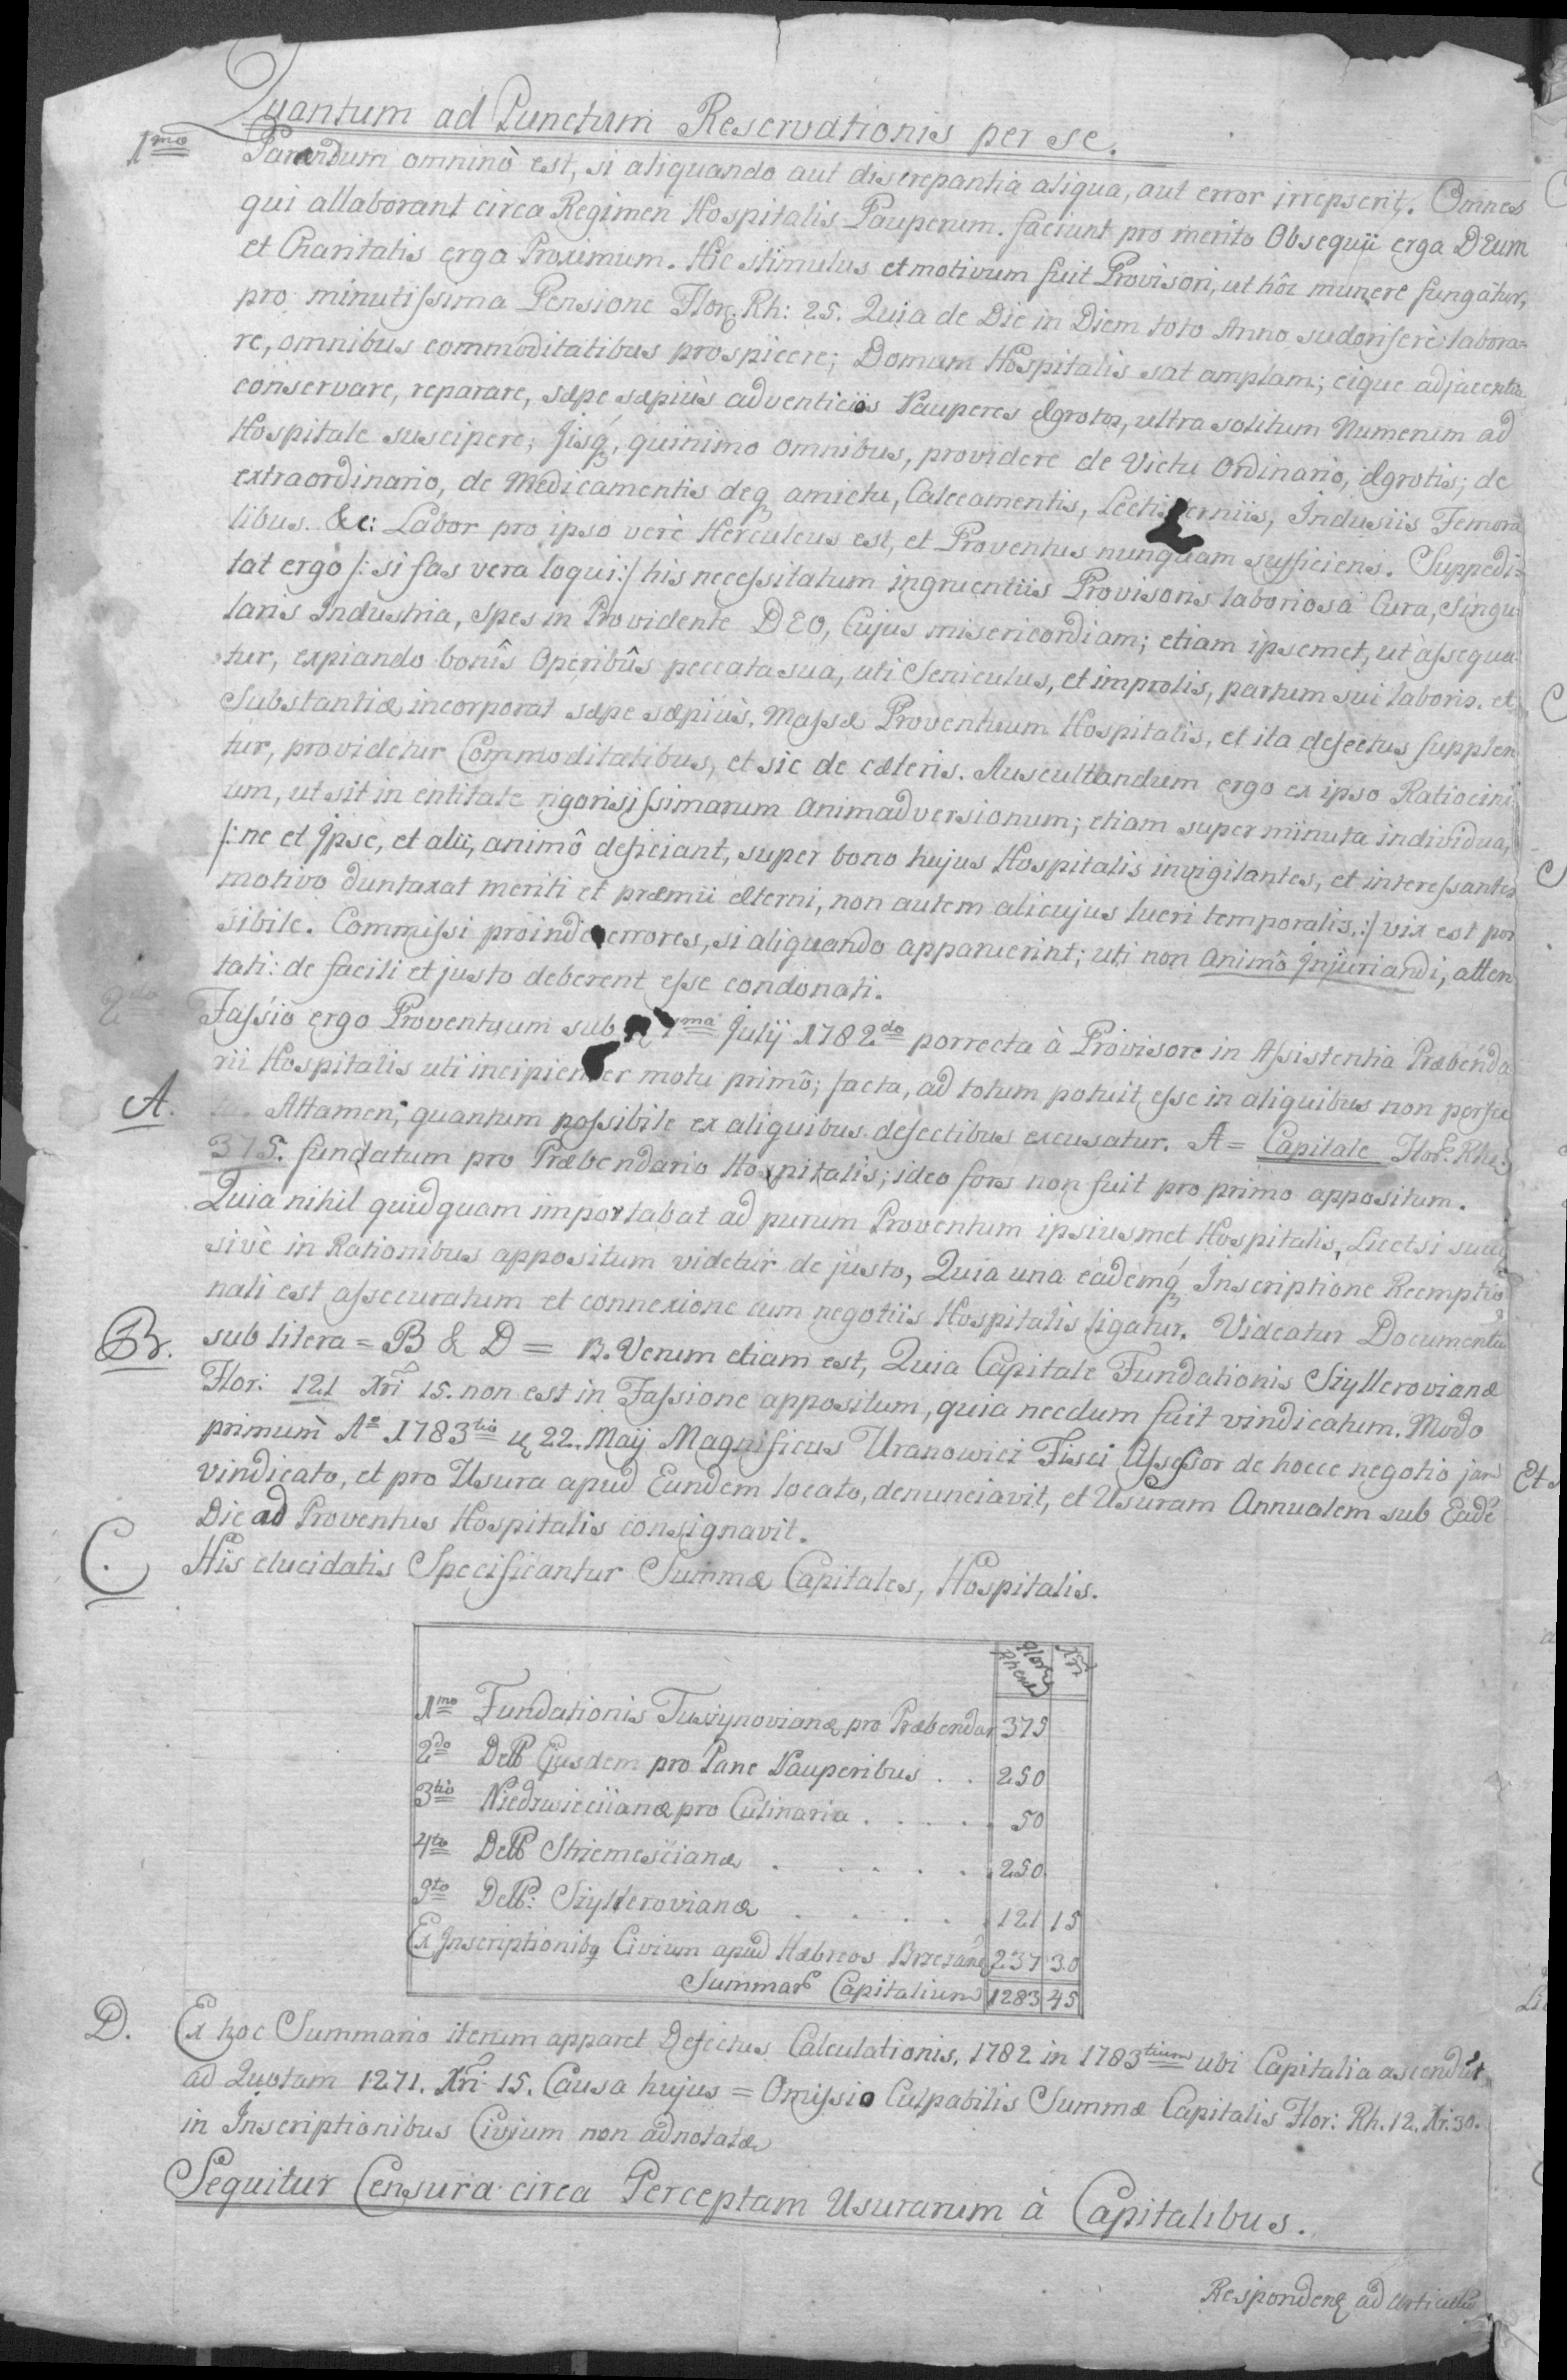 Quantum ad Punctum Reservationis per se.
1mo Parendum omninò est, si aliquando aut discrepantia aliqua, aut error irrepserit. Omnes
qui allaborant circa Regimen Hospitalis Pauperum. faciunt pro merito Obsequii erga DEum
et Charitatis erga Proximum. Hic stimulus et motivum fuit Provisori, ut hôc munere fungatur,
pro minutissima Pensione Flor. Rh: 25. Quia de Die in Diem toto Anno sudoriferè labora=
re, omnibus commoditatibus prospicere; Domum Hospitalis sat amplam; eique adjacentia
conservare, reparare, sæpe sæpiùs adventicios Pauperes ægrotos, ultra solitum Numerum ad
Hospitale suscipere; Jisq, quinimo omnibus, providere de Victu Ordinario, ægrotis; de
extraordinario, de Medicamentis deq amictu, Calceamentis, Lectisterniis, Indusiis Femora
libus. &c: Labor pro ipso verè Herculeus est, et Proventus nunquam sufficiens. Suppedi=
tat ergo /: si fas vera loqui :/ his necessitatum ingruentiis Provisoris laboriosa Cura, singu=
laris Industria, spes in Providente DEO, Cujus misericordiam; etiam ipsemet, ut assequa=
tur, expiando bonîs Operibûs peccata sua, uti Seniculus, et improlis, partum sui laboris. et
Substantiæ incorporat sæpe sæpiùs. Massæ Proventuum Hospitalis, et ita defectus supplen
tur, providetur Commoditatibus, et sic de cæteris. Auscultandum ergo ex ipso Ratiocini
um, ut sit in entitate rigorisissimarum animadversionum; etiam super minuta individua,
/: ne et Jpse, et alii, animô deficiant, super bono hujus Hospitalis invigilantes, et interessantes
motivo duntaxat meriti et præmii æterni, non autem alicujus lucri temporalis, :/ vix est pos
sibile. Commissi proinde errores, si aliquando apparuerint; uti non animô Jnjuriandi, atten
tati: de facili et justo deberent esse condonati.
2do Fassio ergo Proventuum sub 1ma Julij 1782do porrecta à Provisore in Assistentia Præbenda
rii Hospitalis uti incipienter motu primô; facta, ad totum potuit esse in aliquibus non perfec
A. ta. Attamen; quantum possibile ex aliquibus defectibus excusatur. A = Capitale Flor. Rhe.
375. fundatum pro Præbendario Hospitalis; ideo fors non fuit pro primo appositum.
Quia nihil quidquam importabat ad purum Proventum ipsiusmet Hospitalis, Licet si succes
sivè in Rationibus appositum videtur de justo, Quia una eademq Inscriptione Reemptio
nali est assecuratum et connexione cum negotiis Hospitalis ligatur. Videatur Documenta
B. sub litera = B & D = B. Verum etiam est, Quia Capitale Fundationis Szylerovianæ
Flor: 121 Xri 15. non est in Fassione appositum, quia necdum fuit vindicatum. Modo
primum Ao 1783tio 22. Maij Magnificus Uranowicz Fisci Assessor de hocce negotio jam
vindicato, et pro Usura apud Eundem locato, denunciavit, et Usuram Annualem sub Eadē
Die ad Proventus Hospitalis consignavit.
C. His elucidatis Specificantur Summæ Capitales, Hospitalis.
Flor Rhen Xri
1mo Fundationis Tuszynovianæ pro Præbendar 375
2do Detto Ejusdem pro Pane Pauperibus . . 250
3tio Niedzwieciianæ pro Culinaria . . . . . 50
4to Detto Strzemesciianæ . . . . . 250.
5to Detto: Szyllerovianæ . . . . . 121 15
Ex Jnscriptionibq Civium apud Hæbreos Brzezan 237 30
Summar Capitalium 1283 45
D. Ex hoc Summario iterum apparet Defectus Calculationis, 1782 in 1783tium ubi Capitalia ascendūt
ad Quotam 1271. Xri 15. Causa hujus = Omissio Culpabilis Summæ Capitalis Flor: Rh. 12. Xr. 30.
in Inscriptionibus Civium non adnotatæ
Sequitur Censura circa Perceptam Usurarum à Capitalibus.
Respondens ad Articulū